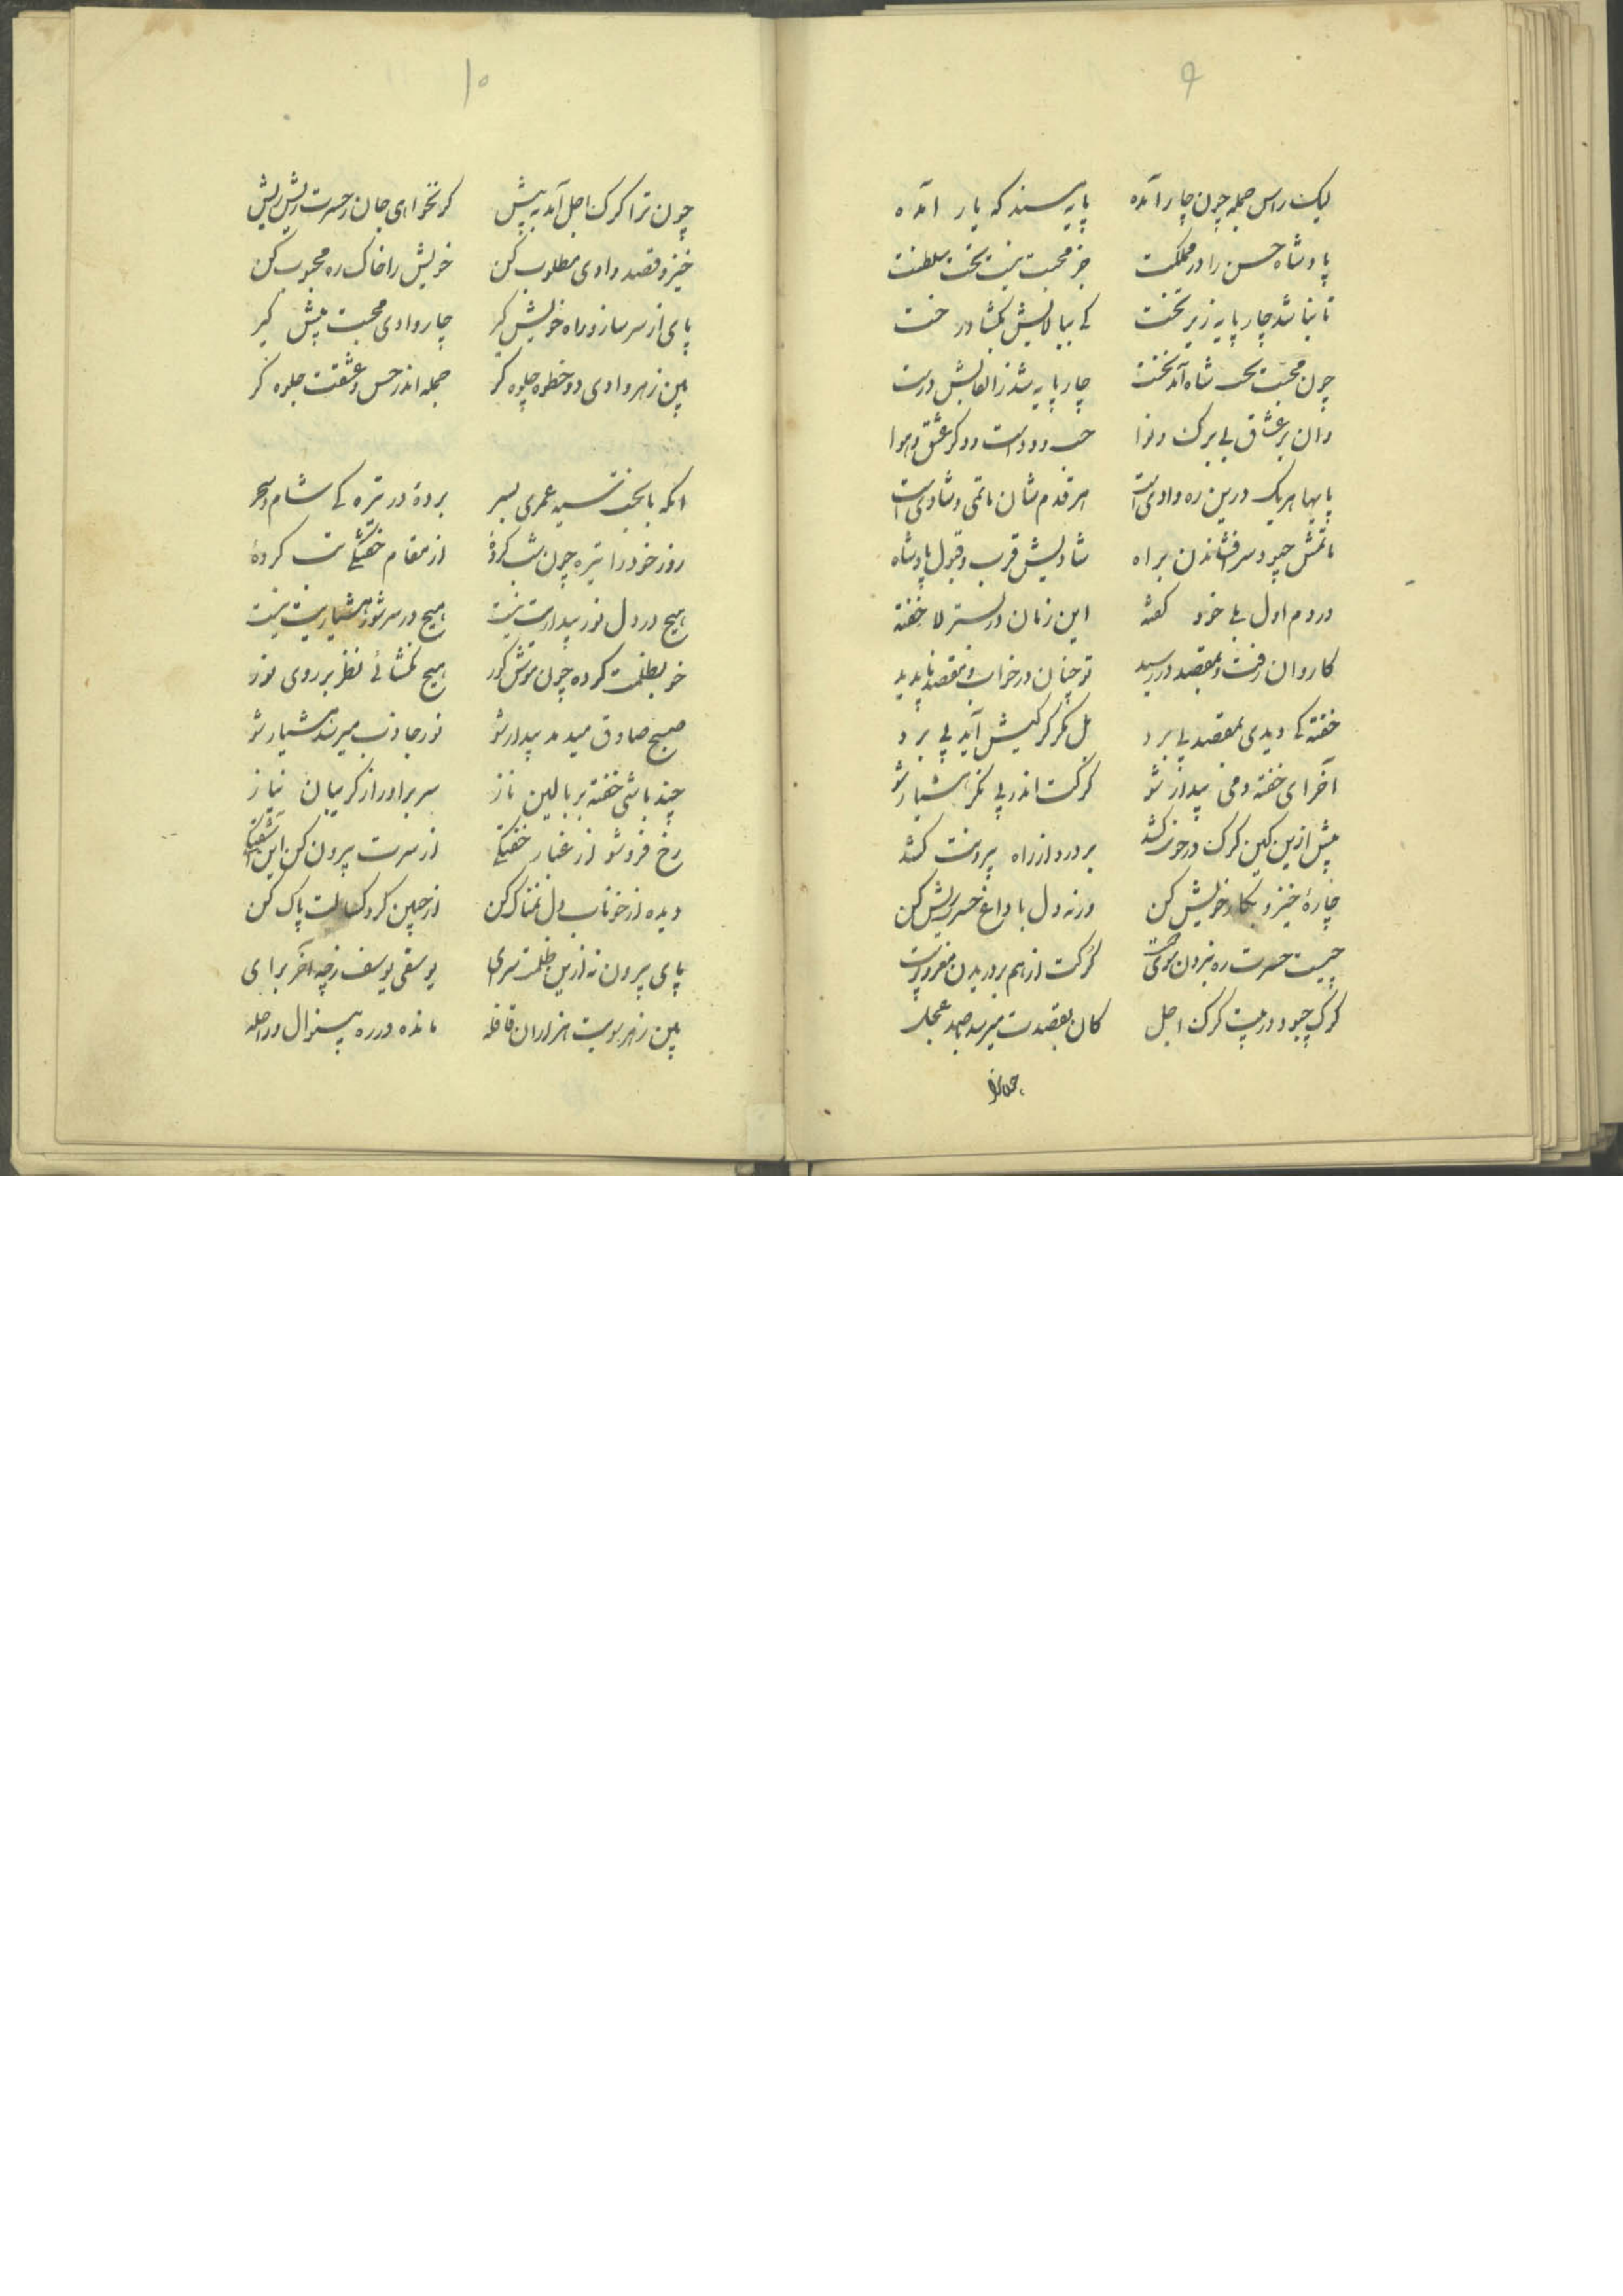 ۹
لیک راس جمله چون چار آمده پایه سند که یار آمده
پادشاه حسن را در مملکت جز محبت نیست تخت سلطنت
تا نباشد چار پایه زیر تخت کی ببالایش کشا در خت
چون محبت تخت شاه آمد نخست چار پایه شد ز القابش درست
وان بر عشاق بی برک و نوا حب وود است و دکر عشق و هوا
پایها هر یک درین ره وادی است هر قدم شان ماتمی و شادی است
ماتمش چبود سر افشاندن براه شادیش قرب و قبول پادشاه
در دم اول بلی خود کفته این زمان در بستر لا خفته
کاروان رفت و بمقصد در رسید تو چنان در خواب و مقصد ناپدید
خفته کی دیدی بمقصد پی برد بل مکر کرکیش آید پی برد
آخر ای خفته دمی بیدار شو کرکت اندر پی نکر هشیار شو
پیش ازین کین کرک در خونت کشد بر درد از راه بیرونت کشد
چارهٔ خیز و بکار خویش کن ورنه دل با داغ حسرت ریش کن
چیست حسرت ره نبردن سوی دوست کرکت از هم بر دریدن مغز و پوست
کرک چبود در پیت کرک اجل کان بقصدت میرسد با صد عجل
چون ترا
۱۰
چون ترا کرک اجل آمد به پیش کر نخواهی جان ز حسرت ریش ریش
خیز و قصد وادی مطلوب کن خویش را خاک ره محبوب کن
پای از سر ساز و راه خویش کیر چار وادی محبت پیش کیر
بین ز هر وادی دو خطوه جلوه کر جمله اندر حس و عشقت جلوه کر
ایکه با بخت سیه عمری بسر بردهٔ در تیره کی شام و سحر
روز خود را تیره چون شب کردهٔ از مقام خفتکی تب کردهٔ
هیچ در دل نور بیداریت نیست هیچ در سر شور هشیاریت نیست
خو بظلمت کرده چون موش کور هیچ نکشائی نظر بر روی نور
صبح صادق میدمد بیدار شو نور جاذب میرسد هشیار شو
چند باشی خفته بر بالین ناز سر براور از کریبان نیاز
رخ فرو شو از غبار خفتکی از سرت بیرون کن این آشفتکی
دیده از خوناب دل نمناک کن از جبین کرد کسالت پاک کن
پای بیرون نه ازین ظلمت سرای یوسفی یوسف ز چه آخر برای
بین ز هر سویت هزاران قافله مانده در ره بینوال و راحله